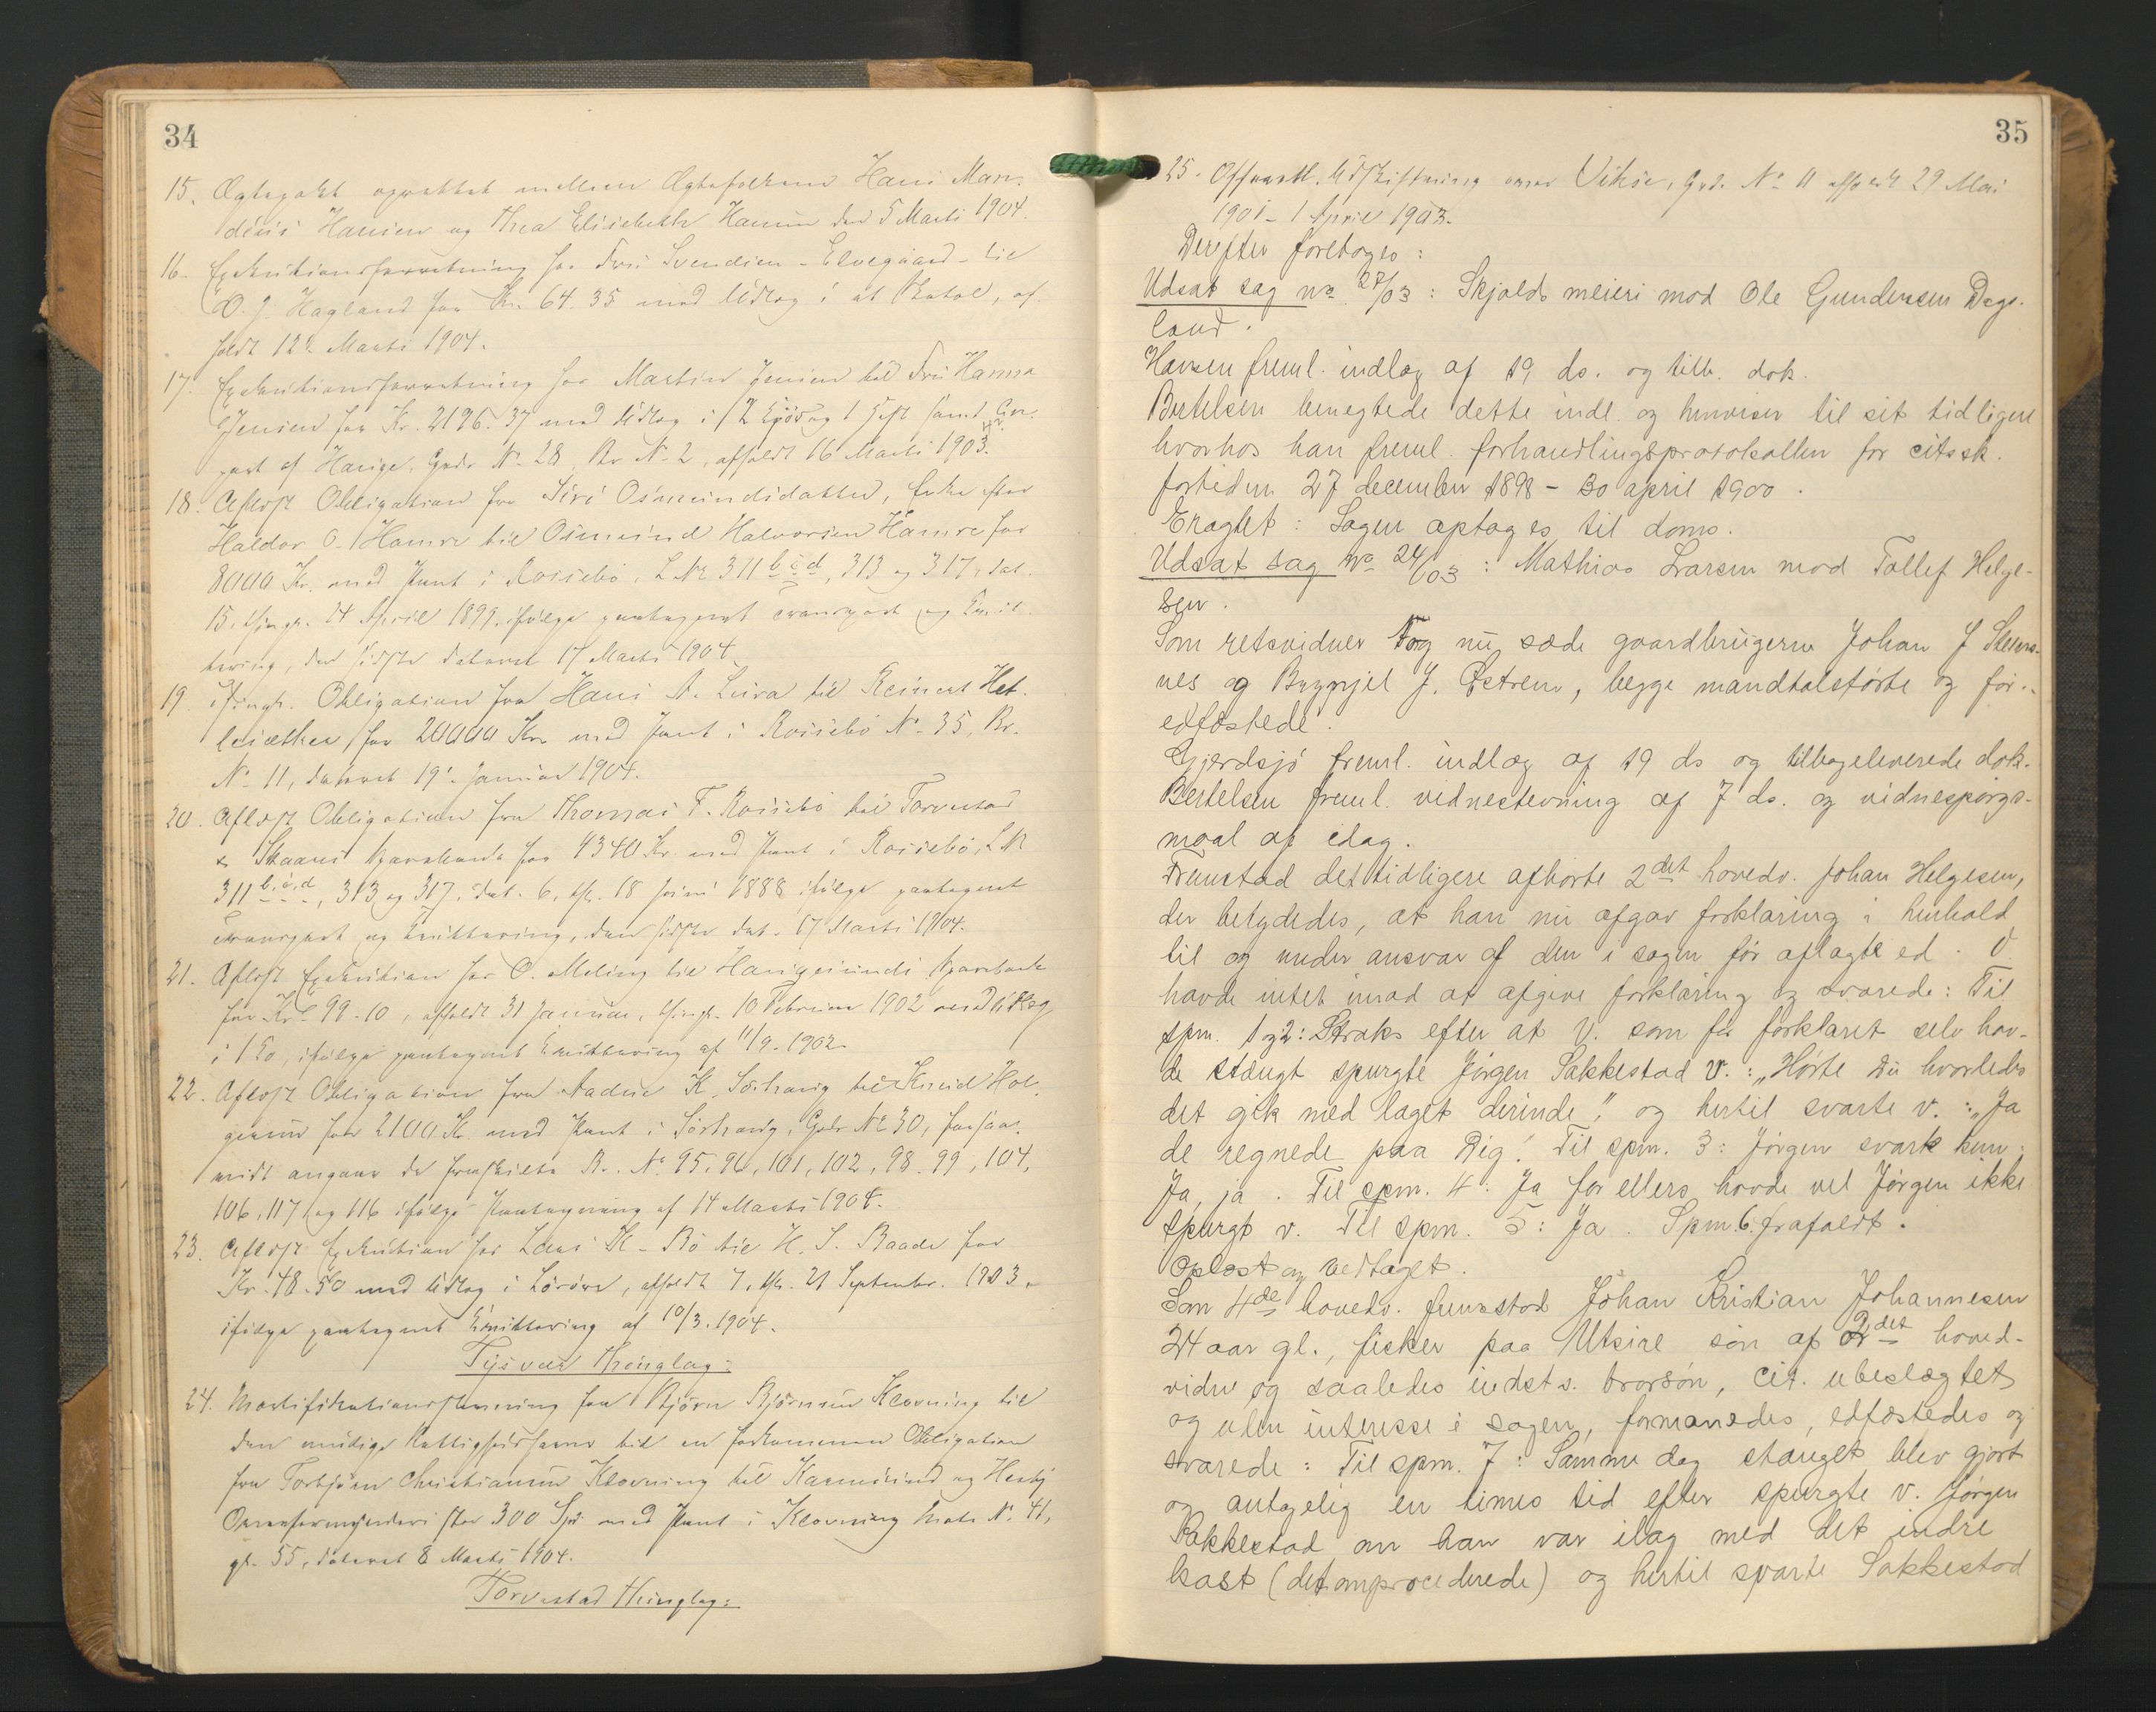 34
15. Ægtepakt oprettet mellem Ægtefolkene Hans Man-
déus Hansen og Thea Elisebeth Hansen den 5 Marts 1904.
16. Exekutionsforretning for Fru Svendsen - Elvegaard - til
O. J. Hagland for Kr. 64.35 med Udlæg i et Batol, af-
holdt 12. Marts 1904.
17. Exekutionsforretning for Martin Jensen til Fru Hanna
Jensen for Kr. 2196.37 med Udlæg i 12 Kjör og 1 Hest samt
part af Hauge, Grdr. No 28 Br No 2, afholdt 16 Marts 1903.
18. Aflyst Obligation fra Siri Osmundsdatter, Enke efter
Haldor O. Hamre til Osmund Halvorsen Hamre for
8000 Kr. med Pant i Rossebö, L No 311 b c d, 313 og 317, dat.
15, thingl. 24 April 1899, ifölge paategnet Transport og Kvit-
tering, den sidste dateret 17 Marts 1904.
19. Thingl. Obligation fra Hans A. Leira til Reinert Het-
lesæther for 20000 Kr. med Pant i Rossebö No 35, Br.
No 11, dateret 19. Januar 1904.
20. Aflyst Obligation fra Thomas T. Rossebö til Torvestad
& Skaare Sparebank for 4340 Kr. med Pant i Rossebö, L N
311 b, c, d, 313 og 317, dat. 6, thl. 18 Juni 1888 ifölge paategnet
Transport og Kvittering, den sidste dat. 17 Marts 1904.
21. Aflyst Exekution for O. Meling til Haugesunds Sparebank
for Kr. 99.10, afholdt 31 Januar, thingl. 10 Februar 1902 med Udlæg
i 1 Ko, ifölge paategnet Kvittering af 11/9.1902.
22. Aflyst Obligation fra Aadne K. Sörhaug til Knud Hol-
gersen for 2100 Kr. med Pant i Sörhaug, Gdr No 30, forsaa-
vidt angaar de fraskilte Br. No 95, 96, 101, 102, 98, 99, 104,
106, 117 og 116 ifölge Paategning af 14 Marts 1904.
23. Aflyst Exekution for Lars K. Bö til H. S. Raade for
Kr. 48.50 med Udlæg i Lösöre, afholdt 7, thl. 21 September 1903,
ifölge paategnet Kvittering af 10/3.1904.
Tysvær Thinglag:
24. Mortifikationsstevning fra Björn Björnsen Klovning til
den mulige Rettighedshaver til en forkommen Obligation
fra Torbjörn Christiansen Klovning til Karmsund og Hesby
Overformynderi stor 300 Spd. med Pant i Klovning Matr. No 41,
gl. 55, dateret 8 Marts 1904.
Torvestad Thinglag:
35
25. Offentl. Udskiftning over Viköe, Grd. No 11 afholdt 29 Mai
1901 - 1 April 1903.
Derefter foretoges:
Udsat sag no 27/03: Skjolds meieri mod Ole Gundersen Dags-
land.
Hansen freml. indlæg af 19 ds. og tilb. dok.
Bertelsen benegtede dette indl. og henviser til sit tidligere
hvorhos han freml. forhandlingsprotokollen for citssk.
fortiden 27 december 1898 - 30 april 1900.
Eragtet: Sagen optages til doms.
Udsat sag no 24/03: Mathias Larsen mod Tollef Helge-
sen.
Som retsvidner tog nu sæde gaardbrugerne Johan J Stens-
nes og Brynjel J. Östrem, begge mandtalsförte og for-
edfæstede.
Gjerdsjö freml. indlæg af 19 ds og tilbageleverede dok.
Bertelsen freml. vidnestevning af 7 ds. og vidnespörgs-
maal af idag.
Fremstod det tidligere afhörte 2det hovedv. Johan Helgesen,
der betydedes, at han nu afgav forklaring i henhold
til og under ansvar af den i sagen för aflagte ed. V
havde intet imod at afgive forklaring og svarede: Til
spm. 1 og 2: Straks efter at V. som för forklaret selv hav-
de stængt spurgte Jörgen Sakkestad V.: „Hörte Du hvorledes
det gik med laget derinde", og hertil svarte v.: „Ja
de regnede paa Dig". Til spm. 3: Jörgen svarte kun:
Ja, ja. Til spm. 4: Ja for ellers havde vel Jörgen ikke
spurgt v. Til spm. 5: Ja. Spm. 6 frafaldt.
Oplæst og vedtaget.
Som 4de hovedv. fremstod Johan Kristian Johannesen
24 aar gl., fisker paa Utsire sön af 2det hoved-
vidne og saaledes indst.s. brorsön, cit. ubeslægtet
og uden interesse i sagen, formanedes, edfæstedes og
svarede: Til spm. 7: Samme dag stænget blev gjort
og antagelig en times tid efter spurgte v. Jörgen
Sakkestad om han var ilag med det indre
kast (det omprocederede) og hertil svarte Sakkestad